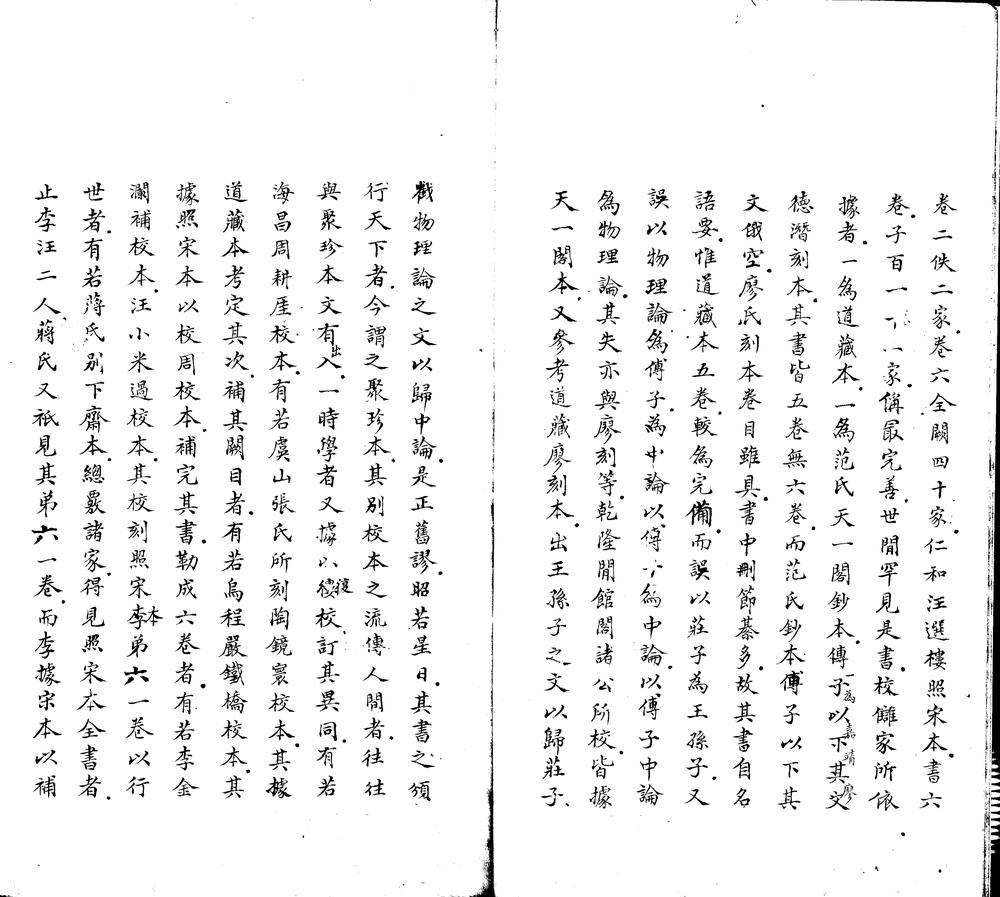 卷二佚二家卷六全闕四十家仁和汪選樓照宋本書六
卷子百一十一家偁最完善世閒罕見是書校讎家所依
據者一為道藏本一為范氏天一閣鈔本一為嘉靖廖
德潛刻本其書皆五卷無六卷而范氏鈔本傅子以下其
文俄空廖氏刻本卷目雖具書中刪節綦多故其書自名
語要惟道藏本五卷較為完備而誤以莊子為王孫子又
誤以物理論為傅子為中論以傅子為中論以傅子中論
為物理論其失亦與廖刻等乾隆閒館閣諸公所校皆據
天一閣本又參考道藏廖刻本出王孫子之文以歸莊子
戳物理論之文以歸中論是正舊謬昭若星日其書之頒
行天下者今謂之聚珍本其別校本之流傳人間者往往
與聚珍本文有出入一時學者又據以復校訂其異同有若
海昌周耕厓校本有若虞山張氏所刻陶鏡寰校本其據
道藏本考定其次補其闕目者有若烏程嚴鐵橋校本其
據照宋本以校周校本補完其書勒成六卷者有若李金
瀾補校本汪小米過校本其校刻照宋本弟六一卷以行
世者有若蔣氏別下齋本總覈諸家得見照宋本全書者
止李汪二人蔣氏又祇見其弟六一卷而李據宋本以補